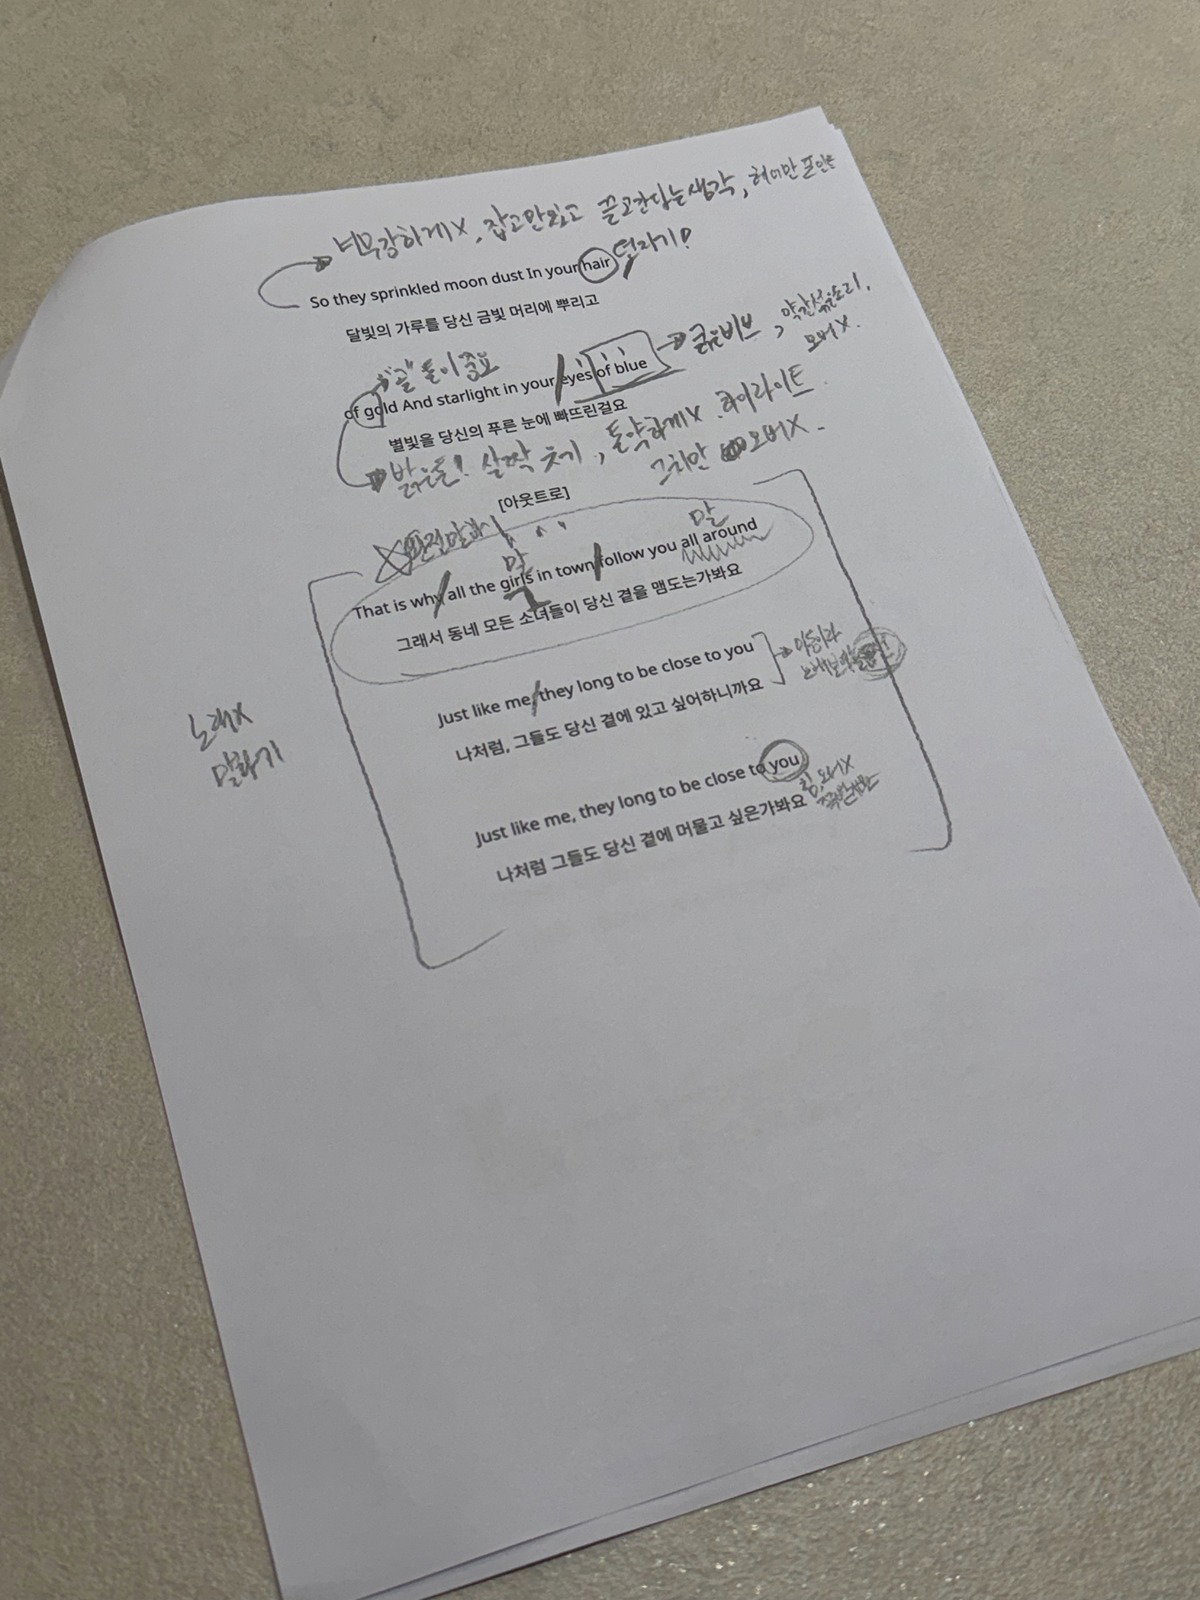 너무강하게X, 잡고만있고 끌고간다는생각, 헤어만 포인트
So they sprinkled moon dust In your hair 덜하기!
달빛의 가루를 당신 금빛 머리에 뿌리고
"골" 톤이 중요
of gold And starlight in your eyes of blue
굵은비브, 약간섞은소리,
오버X.
별빛을 당신의 푸른 눈에 빠뜨린걸요
밝은톤! 살짝 치기, 톤약하게X 하이라이트
그치만 오버X.
[아웃트로]
완전말하기
말
말
That is why all the girls in town follow you all around
그래서 동네 모든 소녀들이 당신 곁을 맴도는가봐요
Just like me, they long to be close to you
나처럼, 그들도 당신 곁에 있고 싶어하니까요
노래X
말하기
Just like me, they long to be close to you
힘, 오버X
나처럼 그들도 당신 곁에 머물고 싶은가봐요